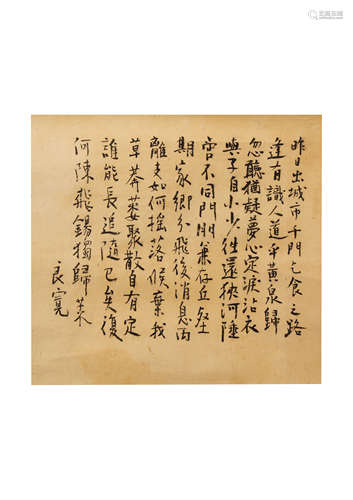 昨日出城市千門乞食之路
逢有識人道子黄泉歸
忽聽猶疑夢心定淚沾衣
與子自小少往還狭河陲
啻不同門朋兼存丘壑
期家鄉分飛後消息両
離支如何搖落候棄我
草莽萎聚散自有定
誰能長追隨已矣復
何陳飛錫獨歸萊
良寛